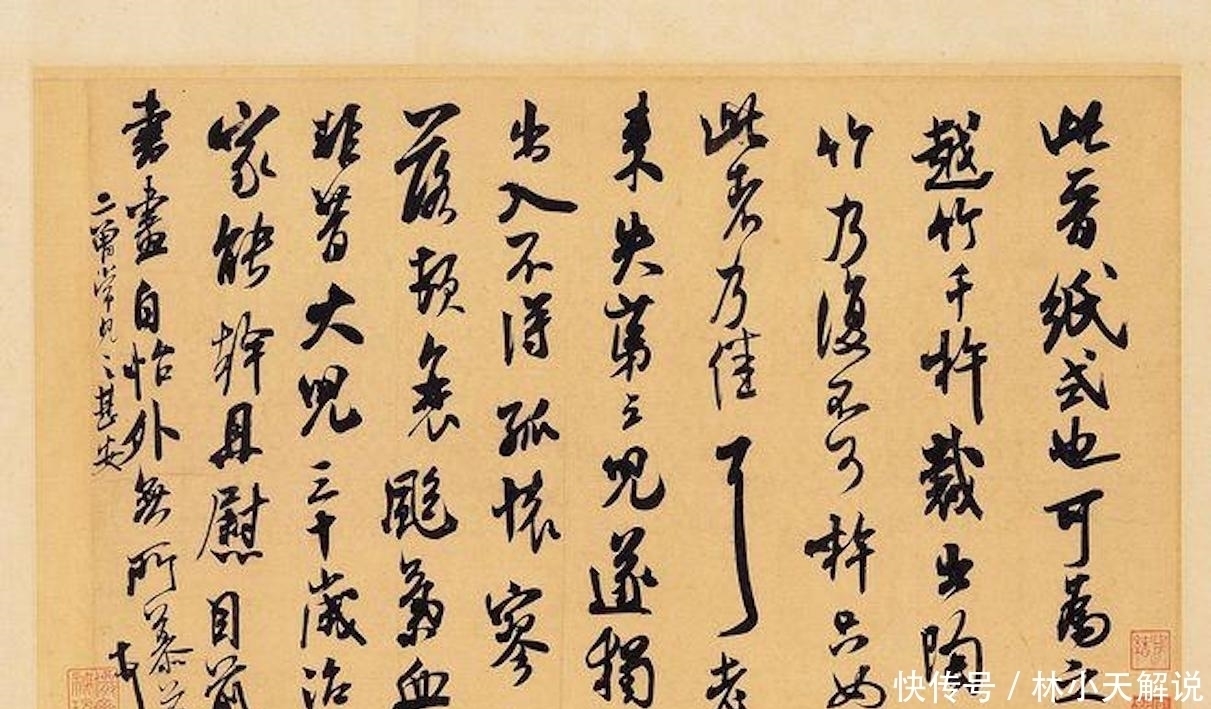 此晉紙式也可為之
越竹千杵裁出陶
竹乃復不可杵只如
此者乃佳耳老
来失第三兒遂獨
出入不得孤懷寥
落頓衰颯氣血
非昔大兒三十歲治
家能幹且慰目前
書畫自怡外無所慕
二曾常見之甚安
快传号 / 林小天解说